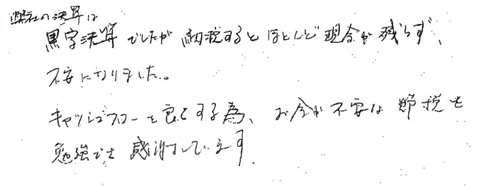 弊社の決算は
黒字決算でしたが納税するとほとんど現金が残らず、
不安になりました。
キャッシュフローを良くする為、お金が不要な節税を
勉強でき感謝しています